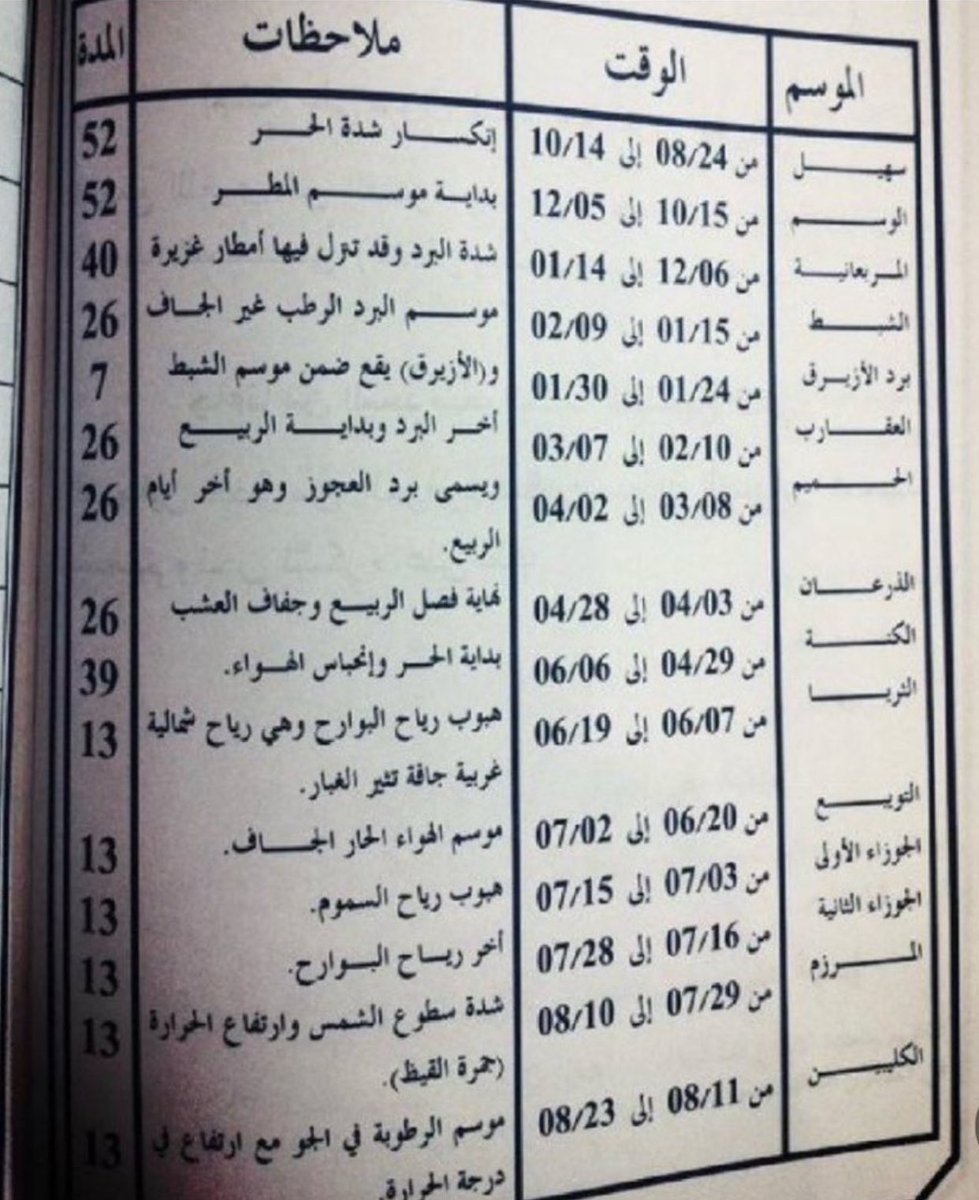 الموسم الوقت ملاحظات المدة
سهيل من 08/24 إلى 10/14 إنكسار شدة الحر 52
الوسم من 10/15 إلى 12/05 بداية موسم المطر 52
المربعانية من 12/06 إلى 01/14 شدة البرد وقد تنزل فيها أمطار غزيرة 40
الشبط من 01/15 إلى 02/09 موسم البرد الرطب غير الجاف 26
برد الأزيرق من 01/24 إلى 01/30 و(الأزيرق) يقع ضمن موسم الشبط 7
العقارب من 02/10 إلى 03/07 أخر البرد وبداية الربيع 26
الحميم من 03/08 إلى 04/02 ويسمى برد العجوز وهو أخر أيام 26
الربيع.
الذرعان من 04/03 إلى 04/28 نهاية فصل الربيع وجفاف العشب 26
الكنة من 04/29 إلى 06/06 بداية الحر وإنحباس الهواء. 39
الثريا من 06/07 إلى 06/19 هبوب رياح البوارح وهي رياح شمالية 13
غربية جافة تثير الغبار.
التويبع من 06/20 إلى 07/02 موسم الهواء الحار الجاف. 13
الجوزاء الأولى من 07/03 إلى 07/15 هبوب رياح السموم. 13
الجوزاء الثانية من 07/16 إلى 07/28 أخر رياح البوارح. 13
المرزم من 07/29 إلى 08/10 شدة سطوع الشمس وارتفاع الحرارة 13
(جمرة القيظ).
الكليبين من 08/11 إلى 08/23 موسم الرطوبة في الجو مع ارتفاع في 13
درجة الحرارة.